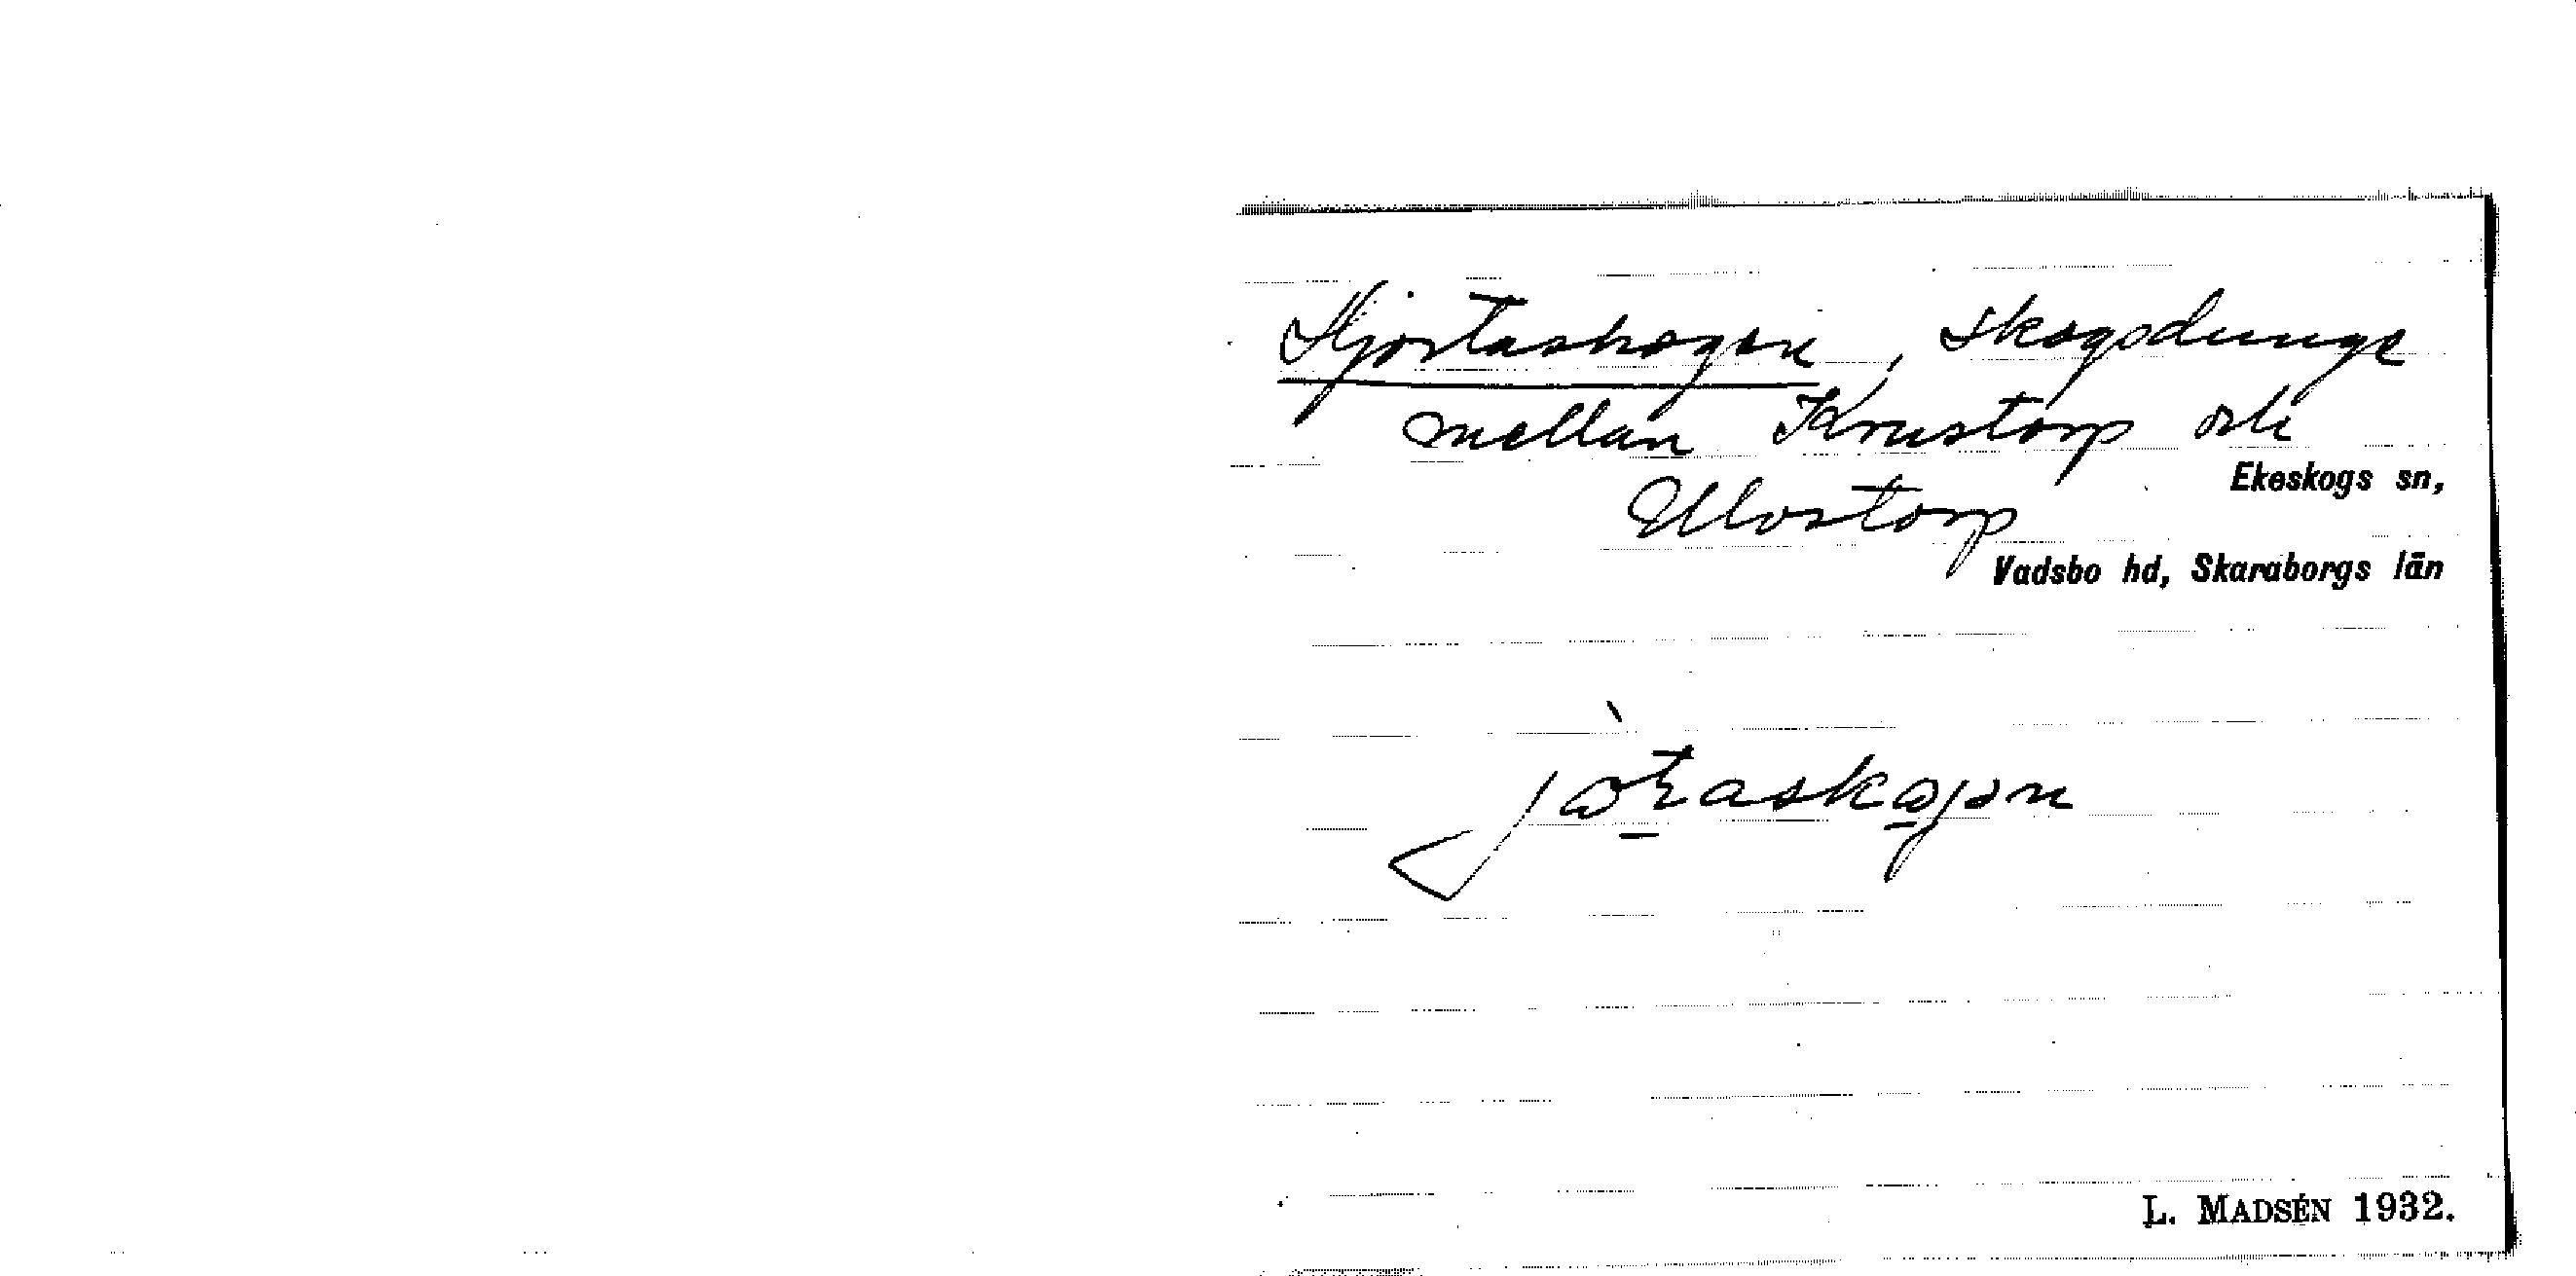 Hjortaskogen, skogsdunge
mellan Krustorp och
Ekeskogs sn,
Ulvstorp
Vadsbo hd, Skaraborgs län
L. MADSÉN 1932.